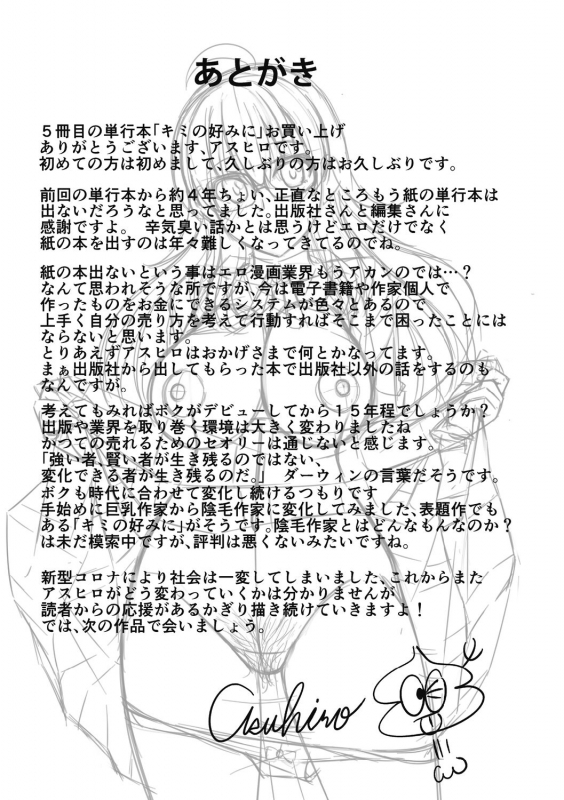 あとがき
５冊目の単行本「キミの好みに」お買い上げ
ありがとうございます、アスヒロです。
初めての方は初めまして、久しぶりの方はお久しぶりです。
前回の単行本から約４年ちょい、正直なところもう紙の単行本は
出ないだろうなと思ってました。出版社さんと編集さんに
感謝ですよ。　辛気臭い話かとは思うけどエロだけでなく
紙の本を出すのは年々難しくなってきてるのでね。
紙の本出ないという事はエロ漫画業界もうアカンのでは…？
なんて思われそうな所ですが、今は電子書籍や作家個人で
作ったものをお金にできるシステムが色々とあるので
上手く自分の売り方を考えて行動すればそこまで困ったことには
ならないと思います。
とりあえずアスヒロはおかげさまで何とかなってます。
まぁ出版社から出してもらった本で出版社以外の話をするのも
なんですが。
考えてもみればボクがデビューしてから１５年程でしょうか？
出版や業界を取り巻く環境は大きく変わりましたね
かつての売れるためのセオリーは通じないと感じます。
「強い者、賢い者が生き残るのではない、
変化できる者が生き残るのだ。」　ダーウィンの言葉だそうです。
ボクも時代に合わせて変化し続けるつもりです
手始めに巨乳作家から陰毛作家に変化してみました、表題作でも
ある「キミの好みに」がそうです。陰毛作家とはどんなもんなのか？
は未だ模索中ですが、評判は悪くないみたいですね。
新型コロナにより社会は一変してしまいました、これからまた
アスヒロがどう変わっていくかは分かりませんが
読者からの応援があるかぎり描き続けていきますよ！
では、次の作品で会いましょう。
Asuhiro